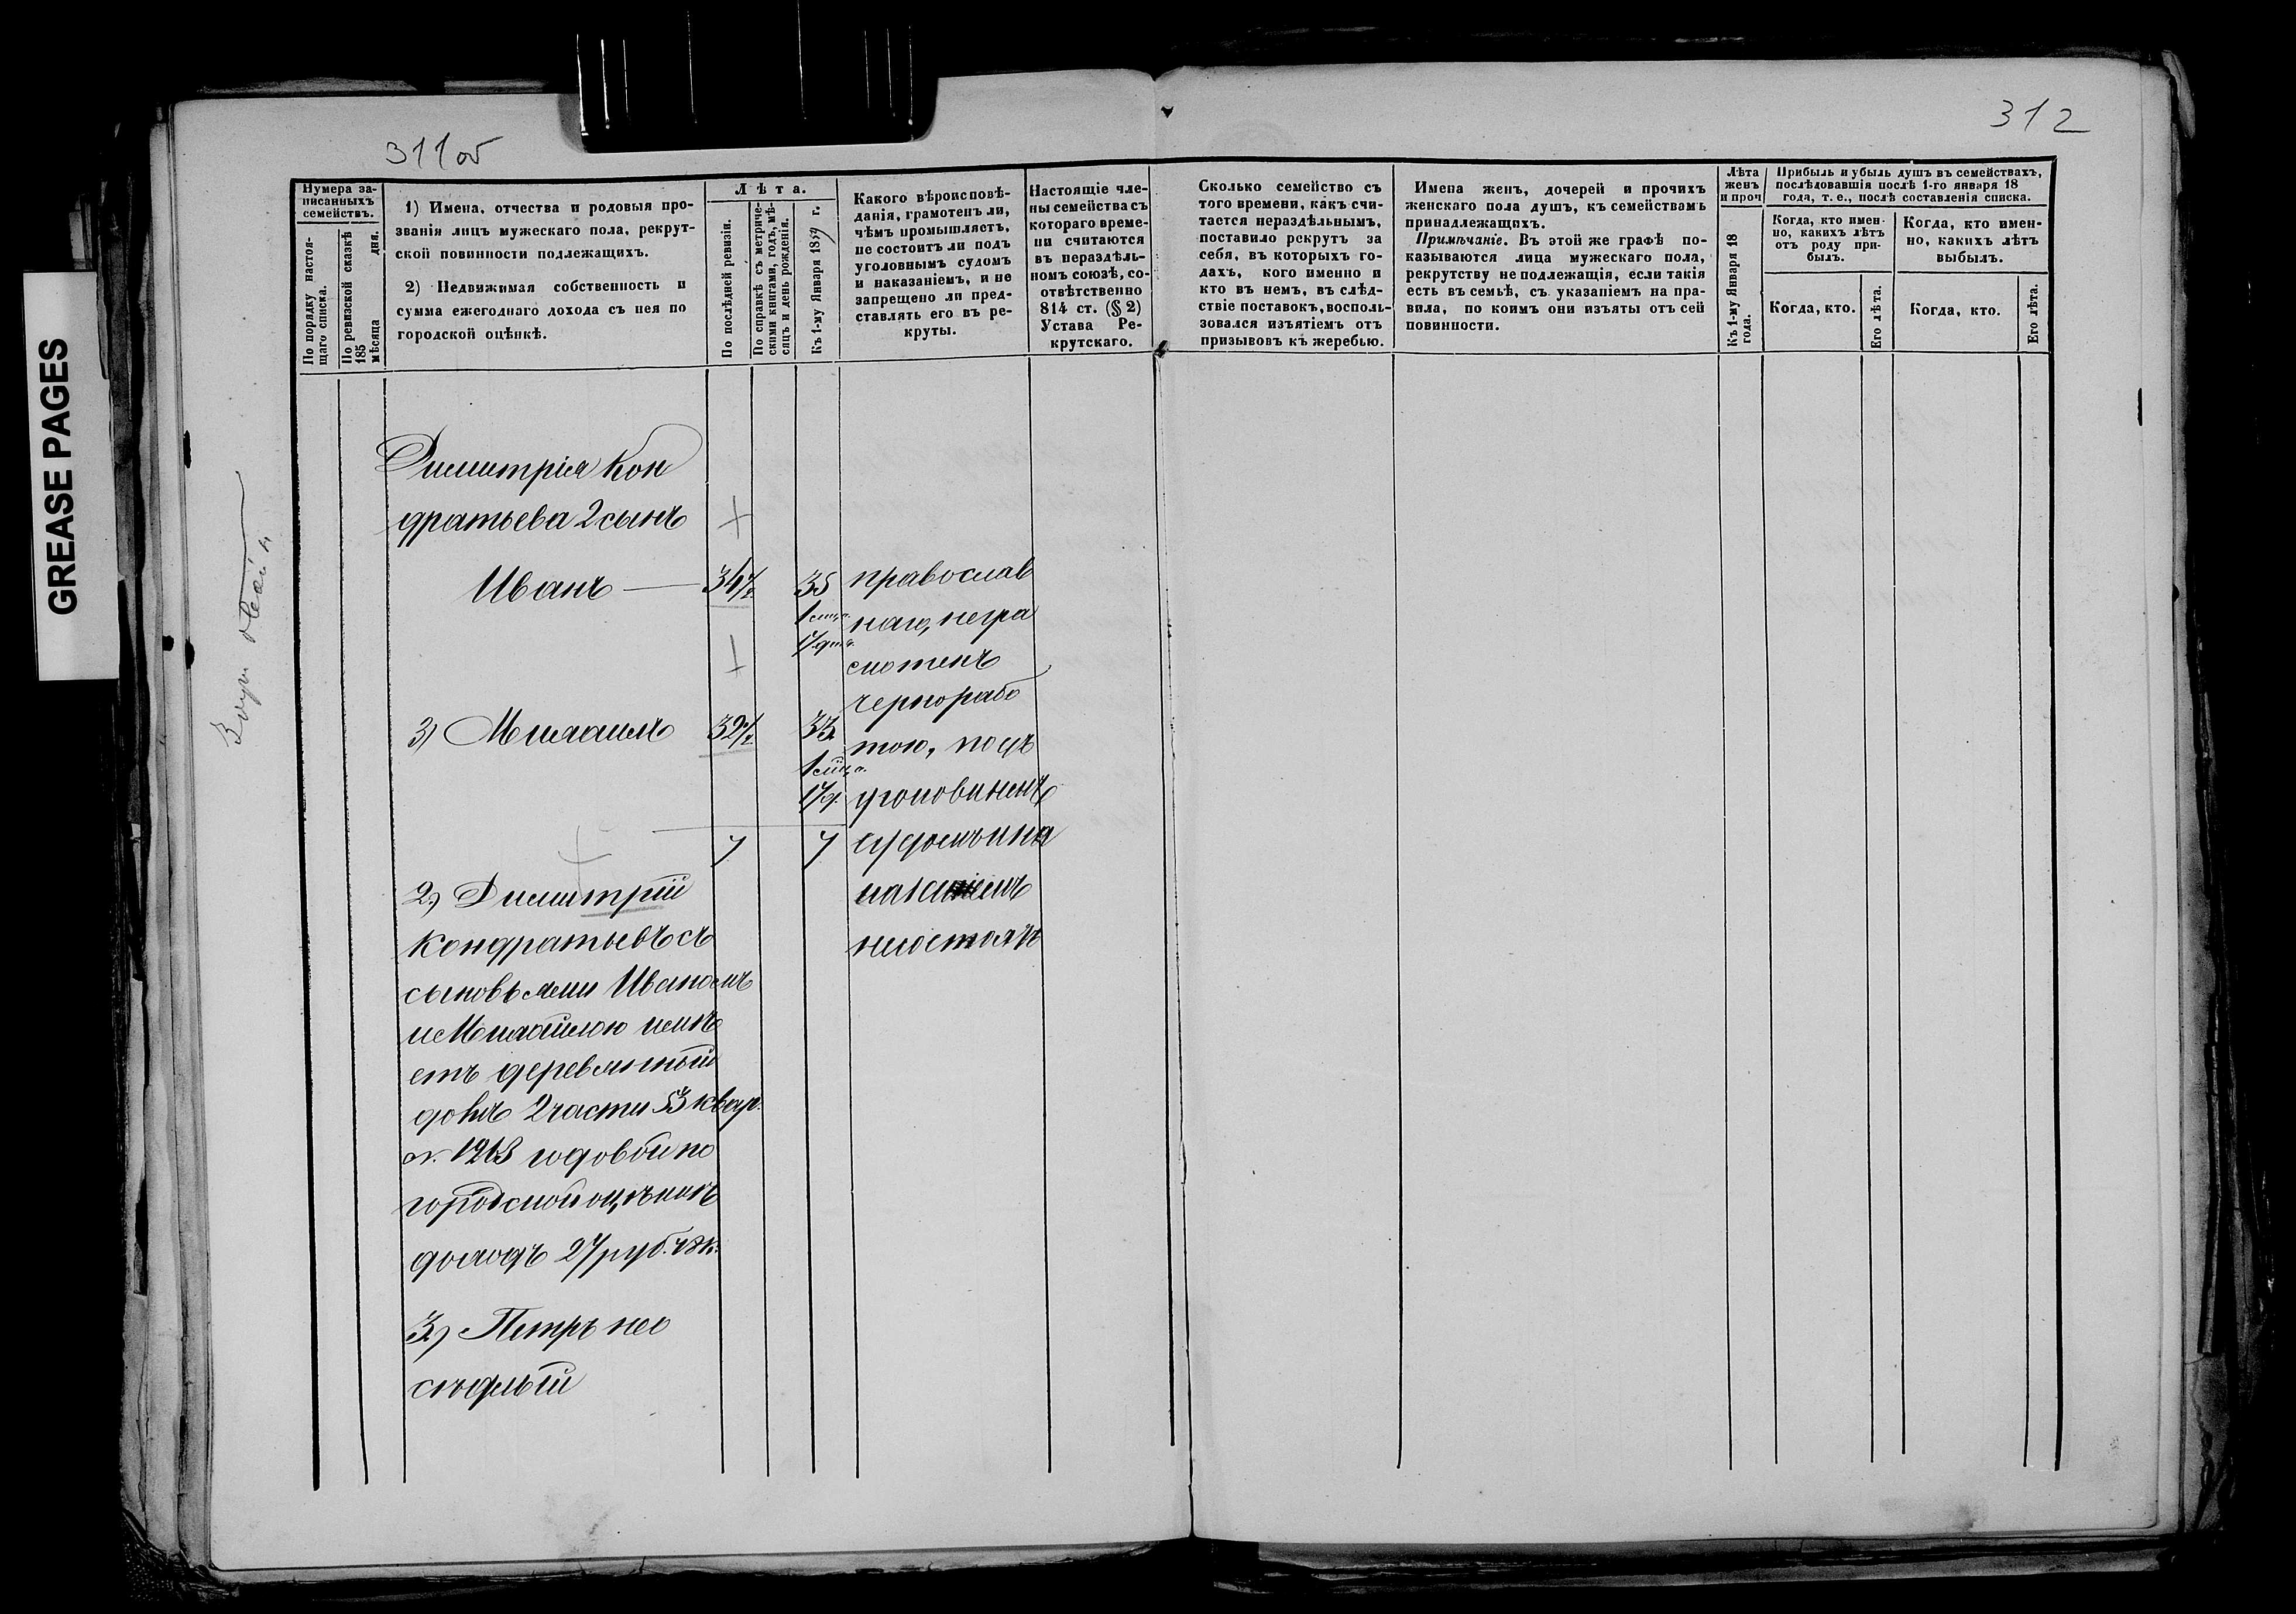 311об
312
GREASE PAGES
Нумера записанныхъ семействъ.
По порядку настоящаго списка.
По ревизской сказкѣ 185 мѣсяца дня.
1) Имена, отчества и родовыя прозванія лицъ мужескаго пола, рекрутской повинности подлежащихъ.
2) Недвижимая собственность и сумма ежегоднаго дохода съ нея по городской оцѣнкѣ.
Лѣта.
По послѣдней ревизіи.
По справкѣ съ метрическими книгами, годъ, мѣсяцъ и день рожденія.
Къ 1-му Января 1859 г.
Какого вѣроисповѣданія, грамотенъ ли, чѣмъ промышляетъ, не состоитъ ли подъ уголовнымъ судомъ и наказаніемъ, и не запрещено ли представлять его въ рекруты.
Настоящіе члены семейства съ котораго времени считаются въ нераздѣльномъ союзѣ, соотвѣтственно 814 ст. (§ 2) Устава Рекрутскаго.
Сколько семейство съ того времени, какъ считается нераздѣльнымъ, поставило рекрутъ за себя, въ которыхъ годахъ, кого именно и кто въ немъ, въ слѣдствіе поставокъ, воспользовался изъятіемъ отъ призывовъ къ жеребью.
Имена женъ, дочерей и прочихъ женскаго пола душъ, къ семействамъ принадлежащихъ.
Примѣчаніе. Въ этой же графѣ показываются лица мужескаго пола, рекрутству не подлежащія, если такія есть въ семьѣ, съ указаніемъ на правила, по коимъ они изъяты отъ сей повинности.
Лѣта женъ и проч
Къ 1-му Января 18 года.
Прибыль и убыль душъ въ семействахъ, послѣдовавшія послѣ 1-го января 18 года, т. е., послѣ составленія списка.
Когда, кто именно, какихъ лѣтъ отъ роду прибылъ.
Когда, кто именно, какихъ лѣтъ выбылъ.
Когда, кто.
Его лѣта.
Когда, кто.
Его лѣта.
Димитрія Кон
дратьева 2 сынъ
Иванъ 34½ 35
1 мца.
17 дня.
3) Михаилъ 32½ 33
1 мца.
17 д.
7 7
православ
наго, негра
мотенъ
чернорабо
тою, подъ
уголовнымъ
судомъ и на
казаніемъ
несостоятъ
2) Димитрій
Кондратьевъ съ
сыновьями Иваномъ
и Михайлою имѣ
етъ деревянный
домъ 2 части 53 квар.
№ 1263 годовой по
городской оцѣнкѣ
доходъ 27 руб. 78 к.
3) Петръ нео
сѣдлый